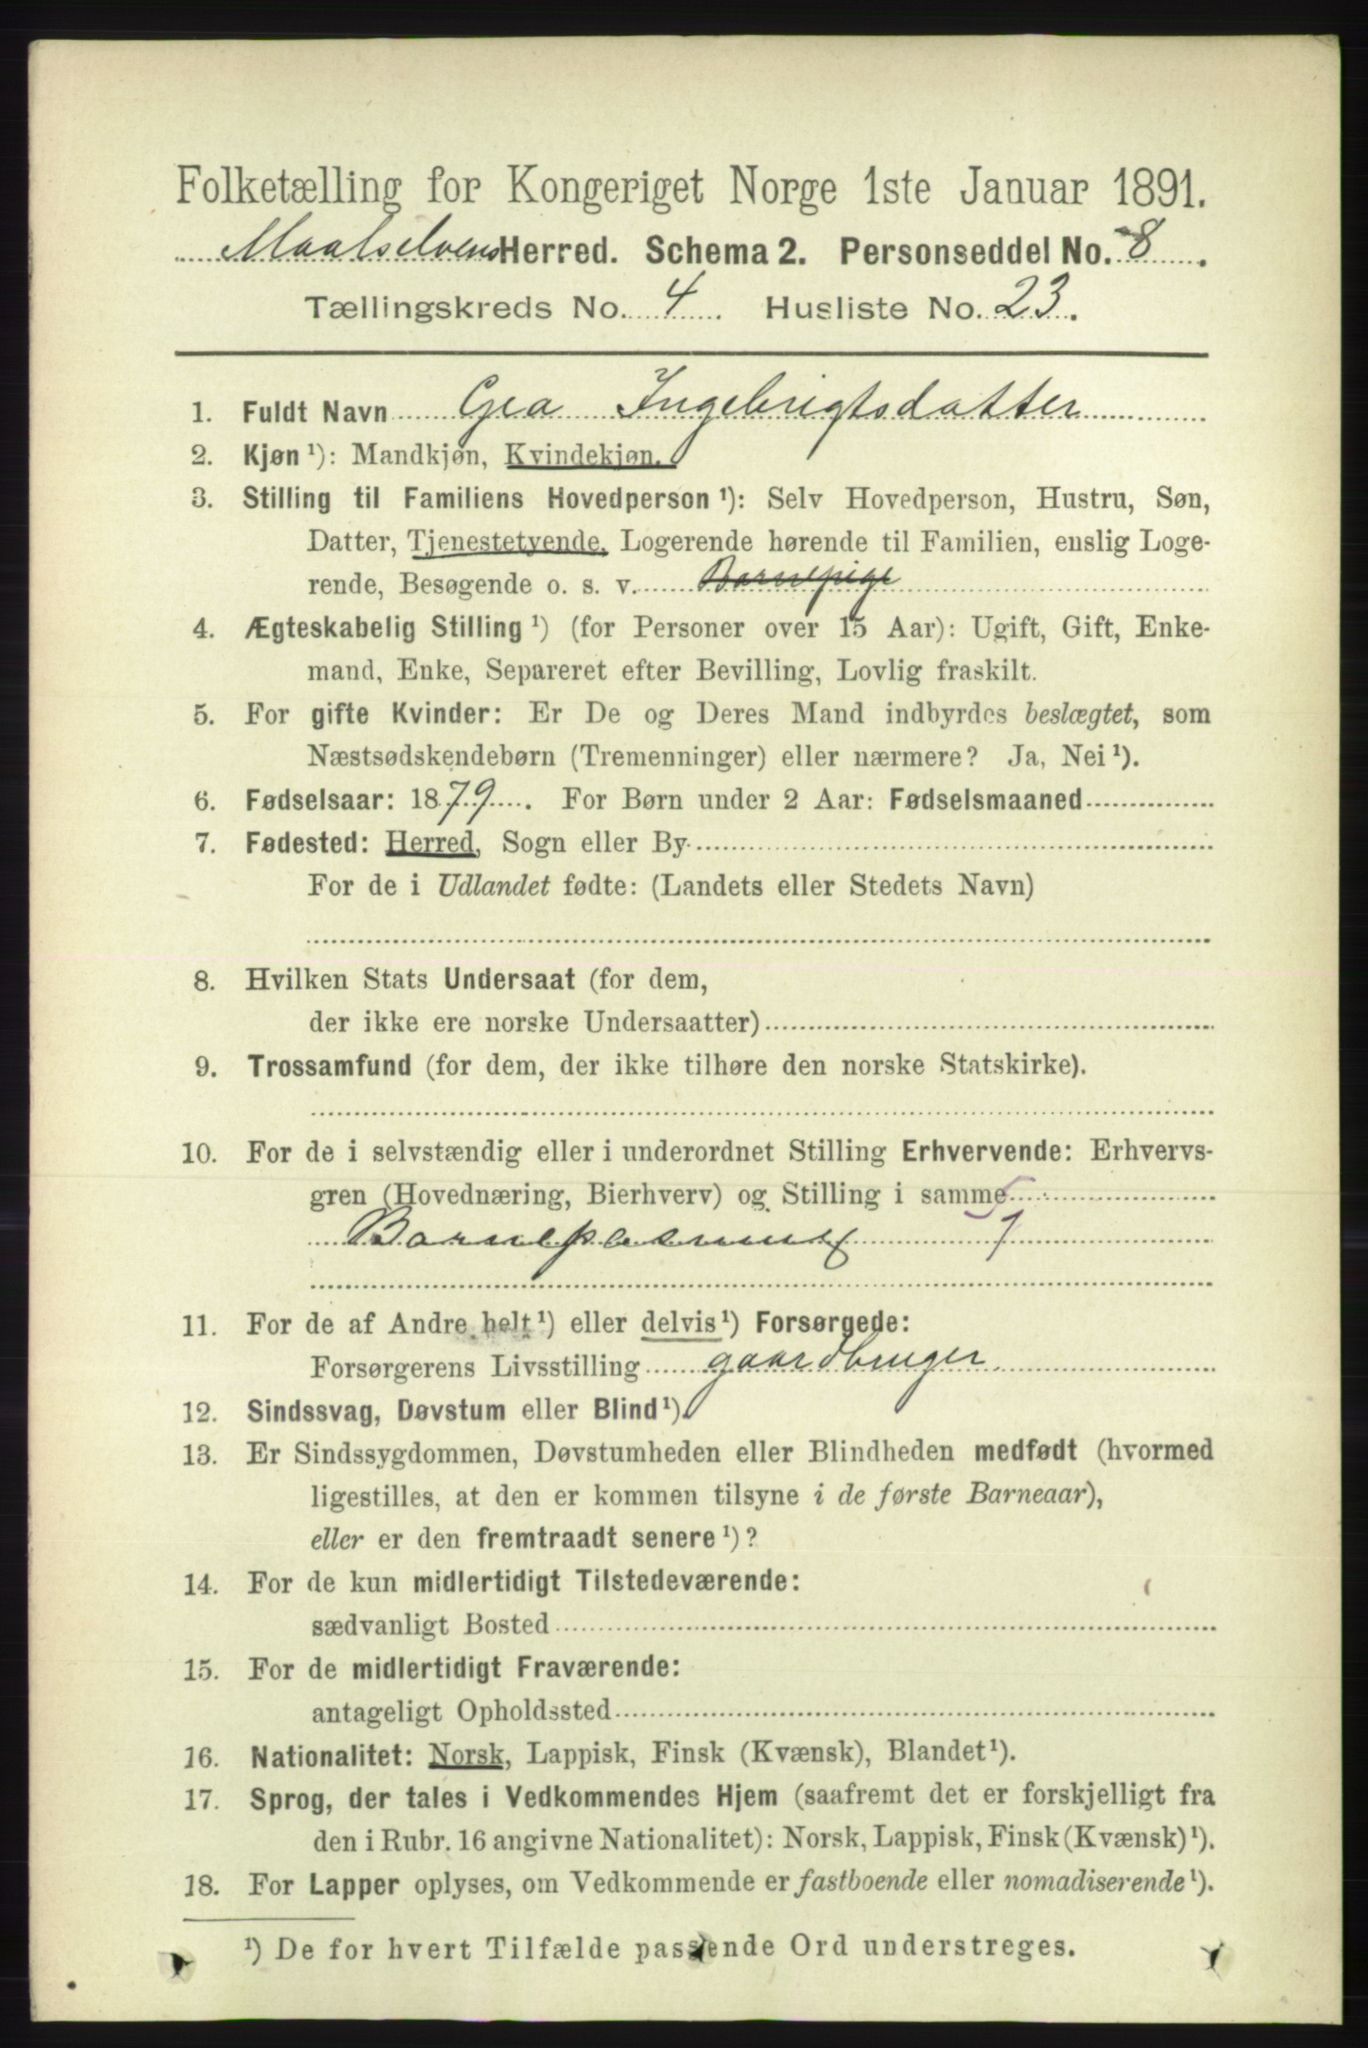 Folketælling for Kongeriget Norge 1ste Januar 1891.
Maalselvens Herred. Schema 2. Personseddel No. 8.
Tællingskreds No. 4. Husliste No. 23.
1. Fuldt Navn Gea Ingebrigtsdatter
2. Kjøn ¹): Mandkjøn, Kvindekjøn.
3. Stilling til Familiens Hovedperson ¹): Selv Hovedperson, Hustru, Søn,
Datter, Tjenestetyende, Logerende hørende til Familien, enslig Loge-
rende, Besøgende o. s. v. Barnepige
4. Ægteskabelig Stilling ¹) (for Personer over 15 Aar): Ugift, Gift, Enke-
mand, Enke, Separeret efter Bevilling, Lovlig fraskilt.
5. For gifte Kvinder: Er De og Deres Mand indbyrdes beslægtet, som
Næstsødskendebørn (Tremenninger) eller nærmere? Ja, Nei ¹).
6. Fødselsaar: 1879. For Børn under 2 Aar: Fødselsmaaned
7. Fødested: Herred, Sogn eller By
For de i Udlandet fødte: (Landets eller Stedets Navn)
8. Hvilken Stats Undersaat (for dem,
der ikke ere norske Undersaatter)
9. Trossamfund (for dem, der ikke tilhøre den norske Statskirke).
10. For de i selvstændig eller i underordnet Stilling Erhvervende: Erhvervs-
gren (Hovednæring, Bierhverv) og Stilling i samme
Barnepasning
11. For de af Andre helt ¹) eller delvis ¹) Forsørgede:
Forsørgerens Livsstilling gaardbruger
12. Sindssvag, Døvstum eller Blind ¹).
13. Er Sindssygdommen, Døvstumheden eller Blindheden medfødt (hvormed
ligestilles, at den er kommen tilsyne i de første Barneaar),
eller er den fremtraadt senere ¹)?
14. For de kun midlertidigt Tilstedeværende:
sædvanligt Bosted
15. For de midlertidigt Fraværende:
antageligt Opholdssted
16. Nationalitet: Norsk, Lappisk, Finsk (Kvænsk), Blandet ¹).
17. Sprog, der tales i Vedkommendes Hjem (saafremt det er forskjelligt fra
den i Rubr. 16 angivne Nationalitet): Norsk, Lappisk, Finsk (Kvænsk) ¹).
18. For Lapper oplyses, om Vedkommende er fastboende eller nomadiserende ¹).
¹) De for hvert Tilfælde passende Ord understreges.